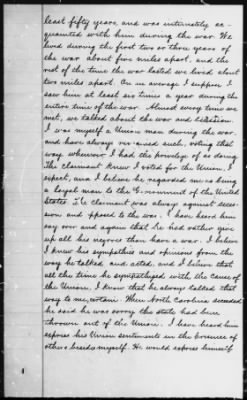 least fifty years, and was intimately ac-
quainted with him during the war. We
lived during the first two or three years of
the war about five miles apart, and the
rest of the time the war lasted we lived about
two miles apart. On an average I suppose I
saw him at least six times a year during the
entire time of the war. Almost every time we
met, we talked about the war and secession.
I was myself a Union man during the war,
and have always remained such, voting that
way whenever I had the privilege of so doing
The claimant knew I voted for the Union, I
expect, and I believe he regarded me as being
a loyal man to the Government of the United
States. The claimant was always against seces-
sion and opposed to the war. I have heard him
say over and again that he had rather give
up all his negroes than have a war. I believe
I knew his sympathies and opinions from the
way he talked and acted, and I believe that
all the time he sympathized with the cause of
the Union, I know that he always talked that
way to me, certain. When North Carolina seceded
he said he was sorry the state had been
thrown out of the Union. I have heard him
express his Union sentiments in the presence of
others besides myself. He would express himself